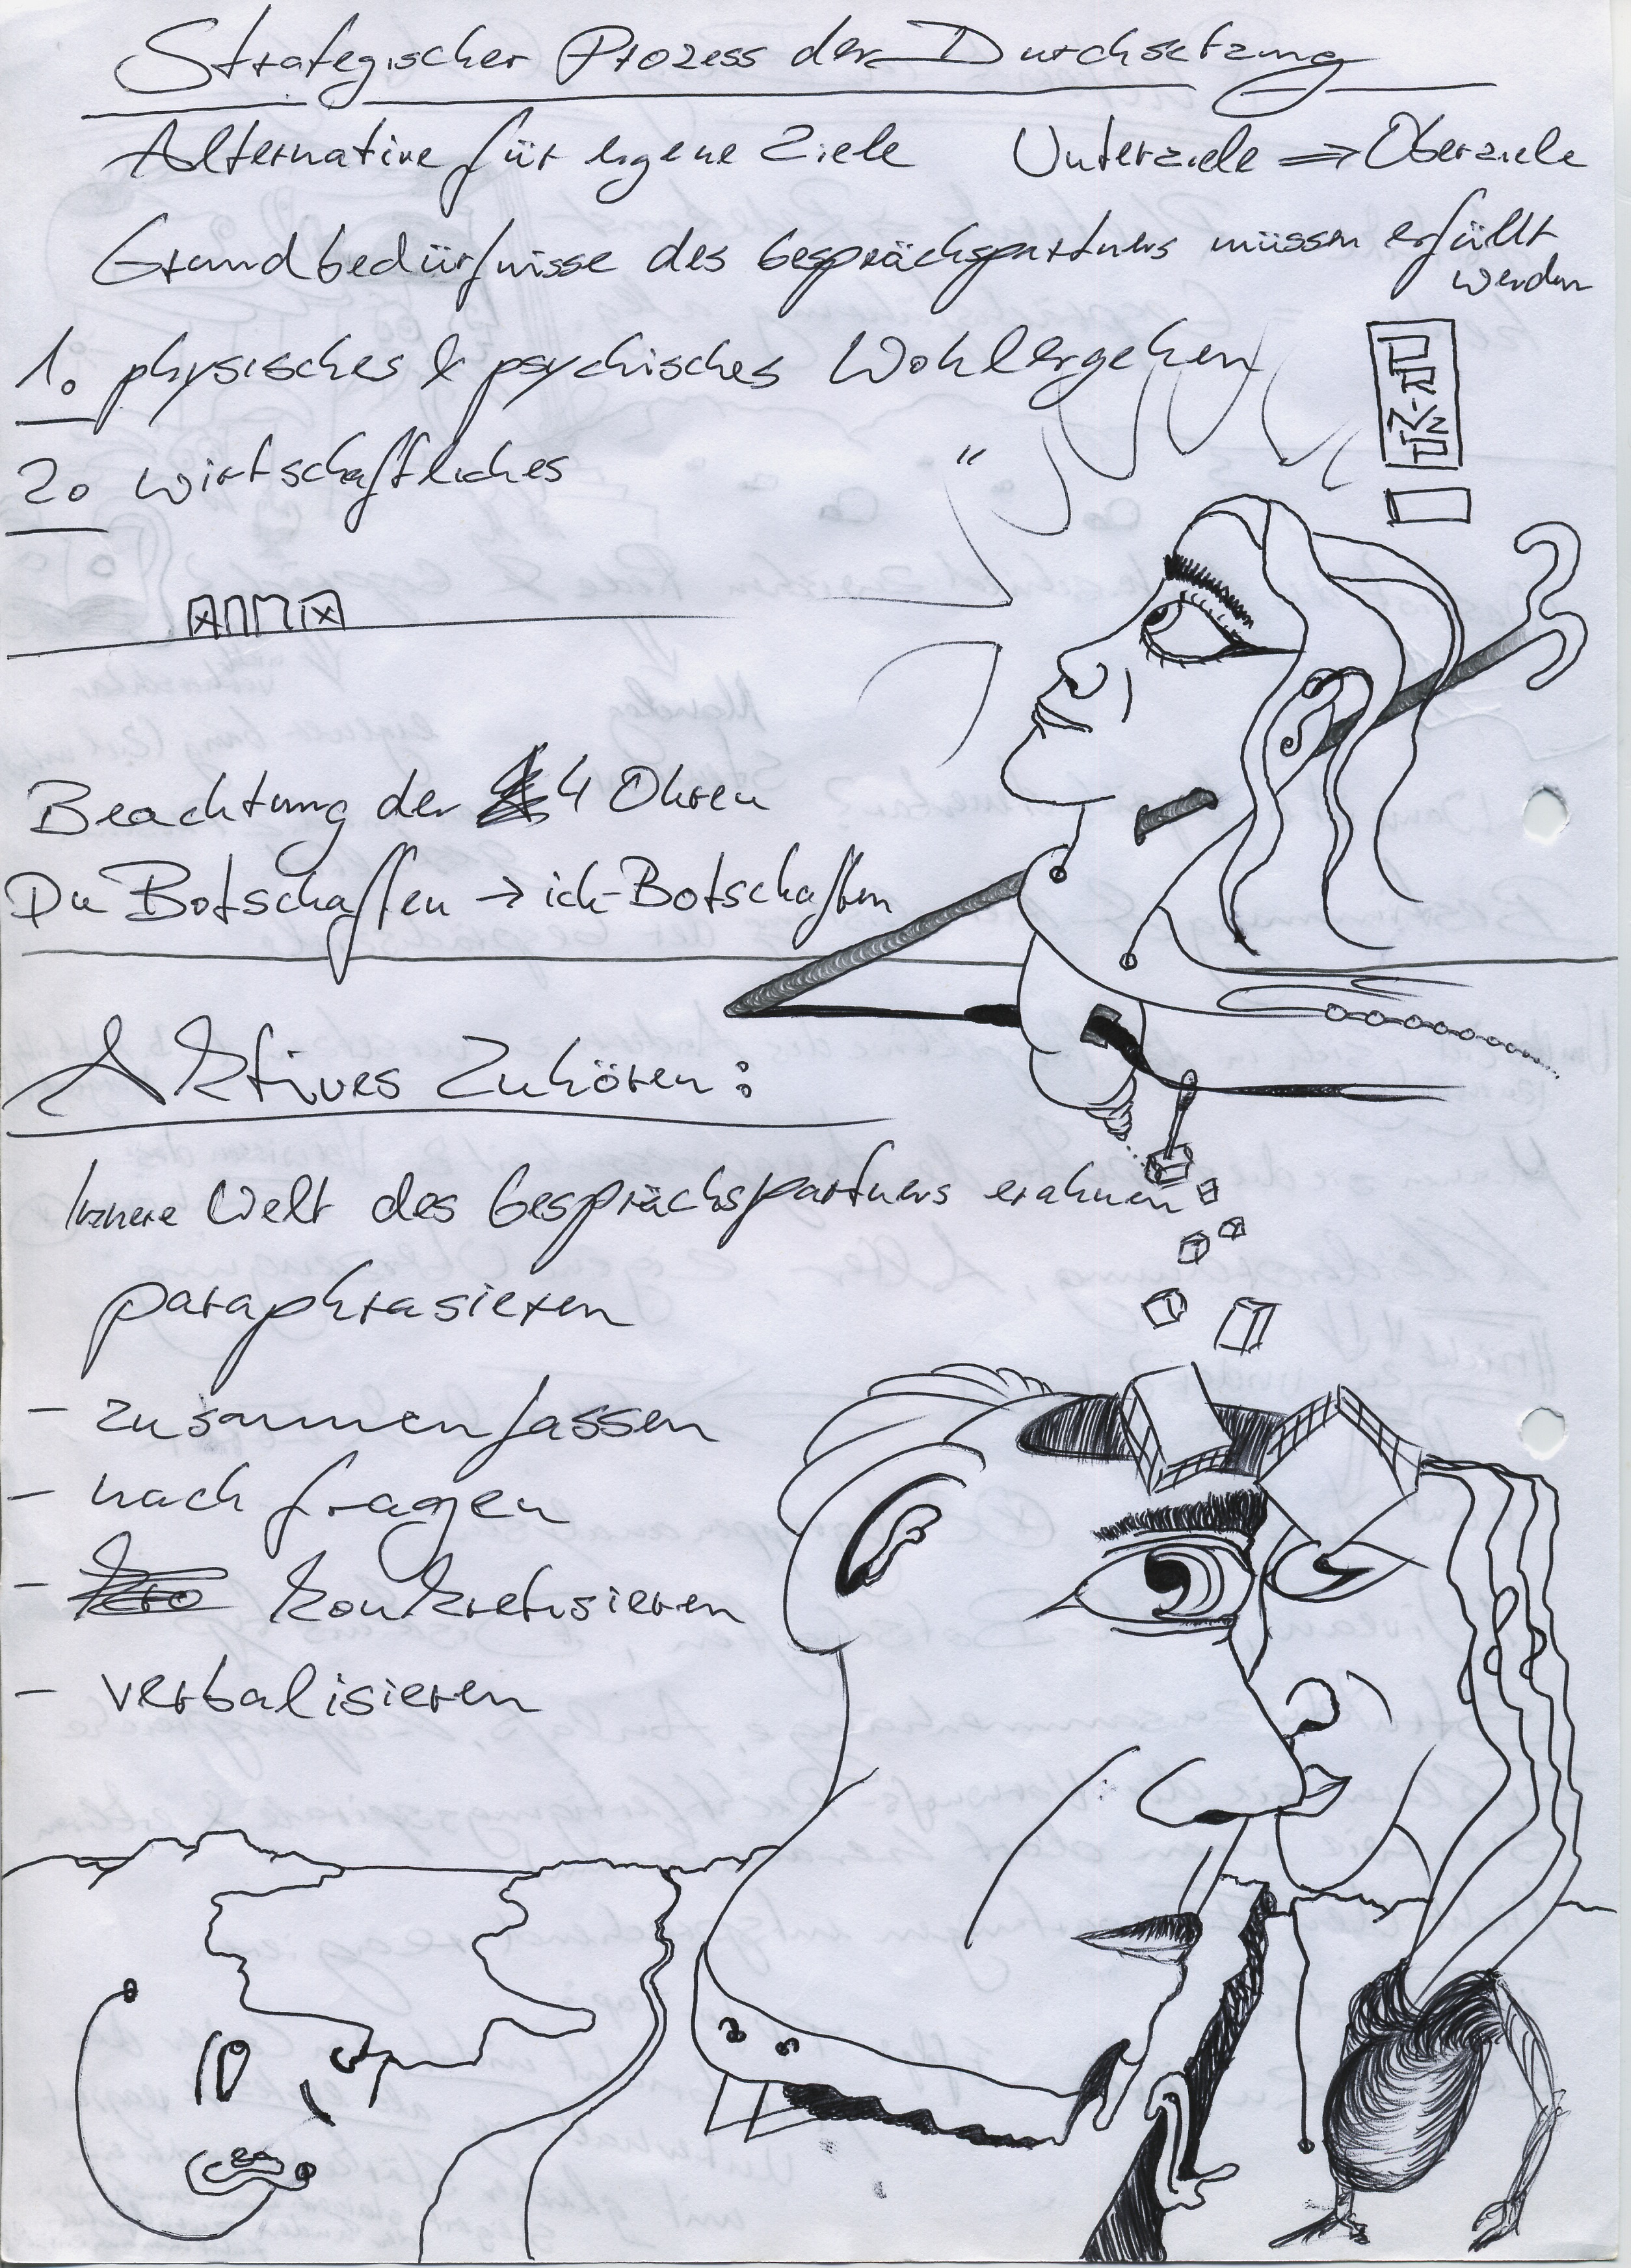 Strategischer Prozess der Durchsetzung
Alternative für eigene Ziele Unterziele => Oberziele
Grundbedürfnisse des Gesprächspartners müssen erfüllt
werden
1. physisches & psychisches Wohlergehen
PRINZIP
2. wirtschaftliches
"
ANNA
Beachtung der 4 Ohren
Du Botschaften → ich-Botschaften
Aktives Zuhören:
Innere Welt des Gesprächspartners erahnen
paraphrasieren
- zusammenfassen
- nach fragen
- konkretisieren
- verbalisieren